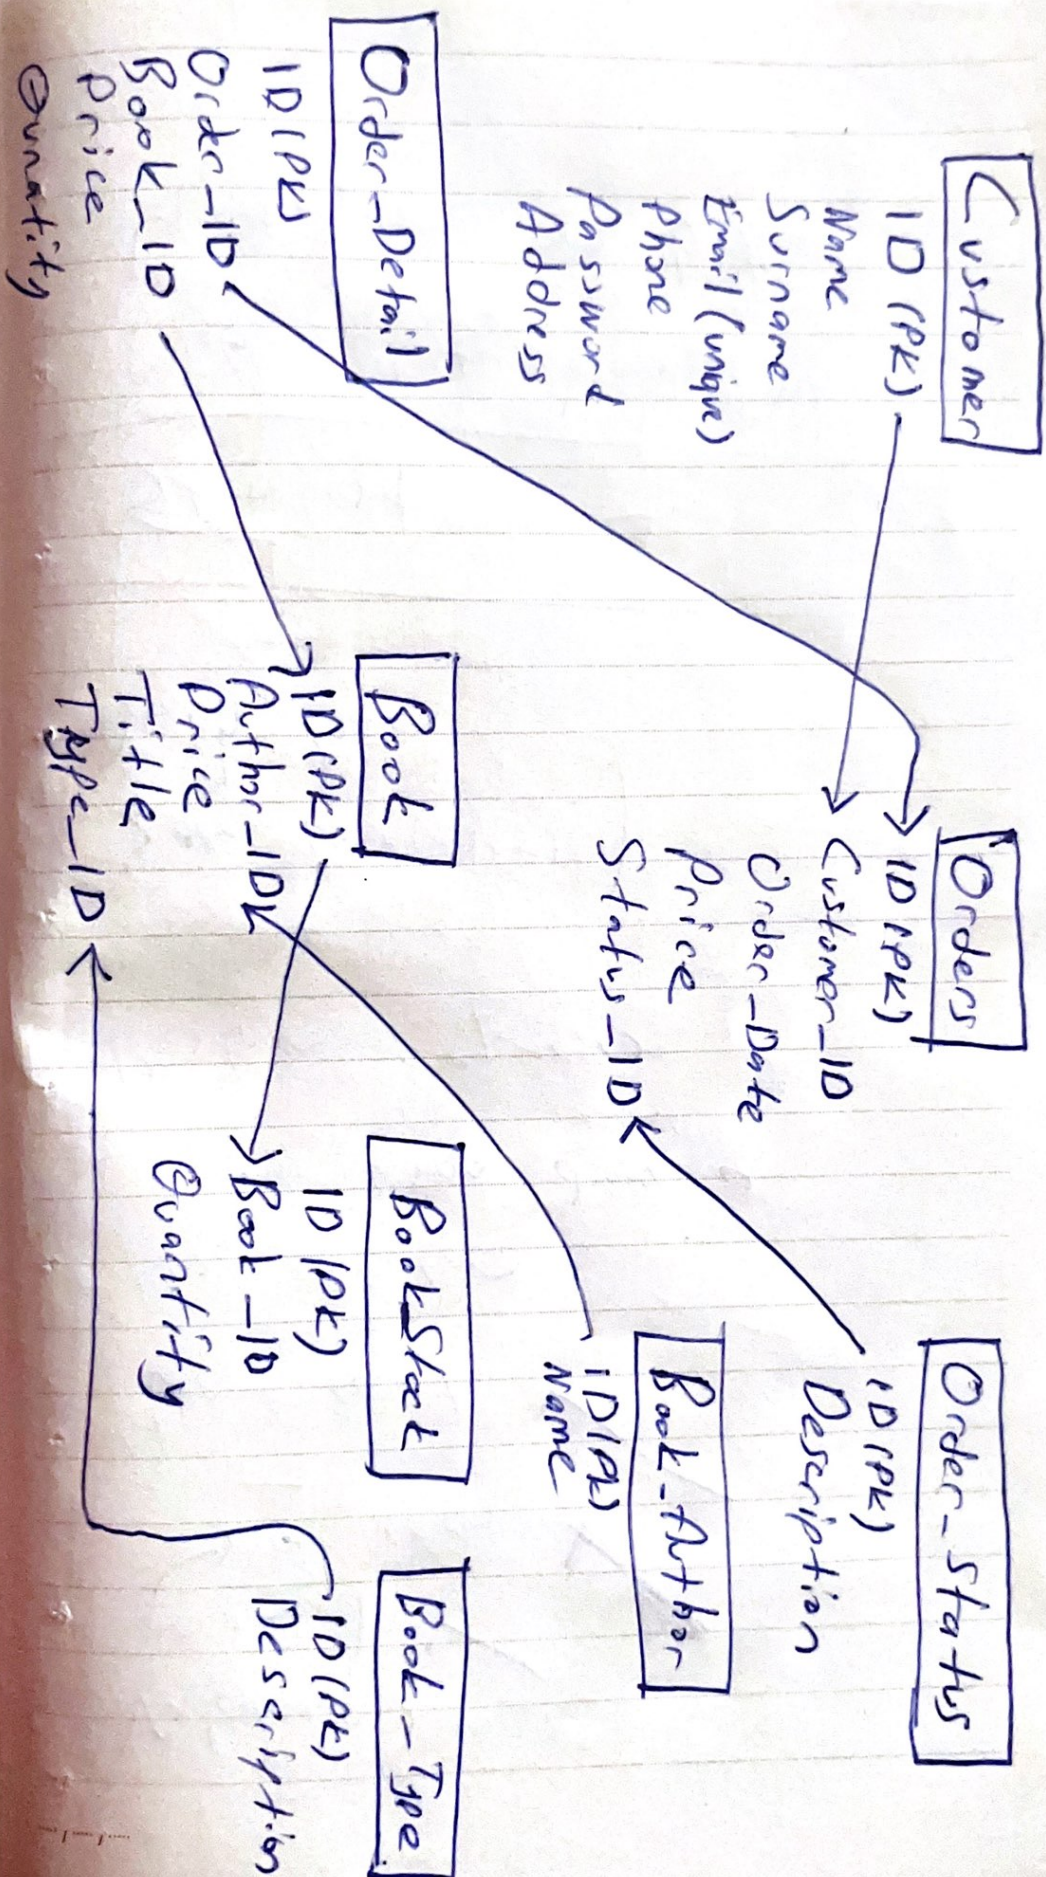 Customer
ID (PK)
Name
Surname
Email (unique)
Phone
Password
Address
Orders
ID (PK)
Customer_ID
Order_Date
Price
Status_ID
Order_Status
ID (PK)
Description
Book_Author
ID (PK)
Name
Order_Detail
ID (PK)
Order_ID
Book_ID
Price
Qunatity
Book
ID (PK)
Author_ID
Price
Title
Type_ID
Book_Stock
ID (PK)
Book_ID
Quantity
Book_Type
ID (PK)
Description